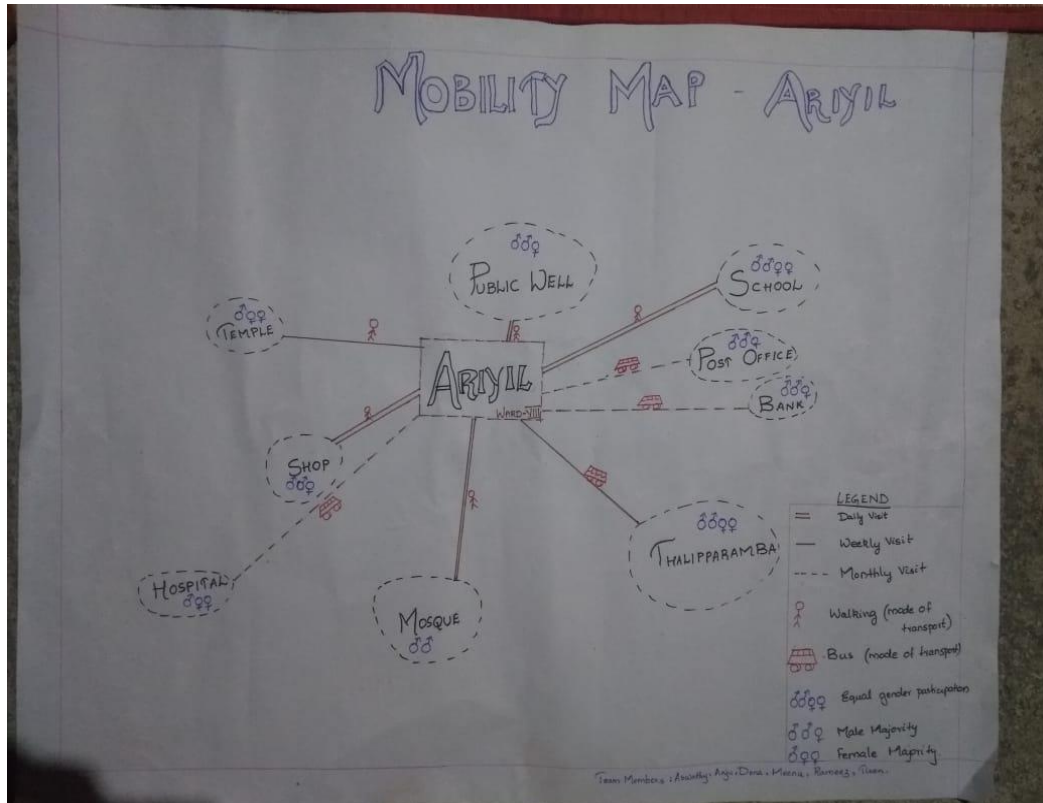 MOBILITY MAP - ARIYIL
PUBLIC WELL
SCHOOL
TEMPLE
POST OFFICE
ARIYIL
WARD-VIII
BANK
SHOP
THALIPPARAMBA
HOSPITAL
MOSQUE
LEGEND
Daily Visit
Weekly Visit
Monthly Visit
Walking (mode of
transport)
Bus (mode of transport)
Equal gender participation
Male Majority
Female Majority
Team Members : Anju, Dona, Meenu, Rameez,